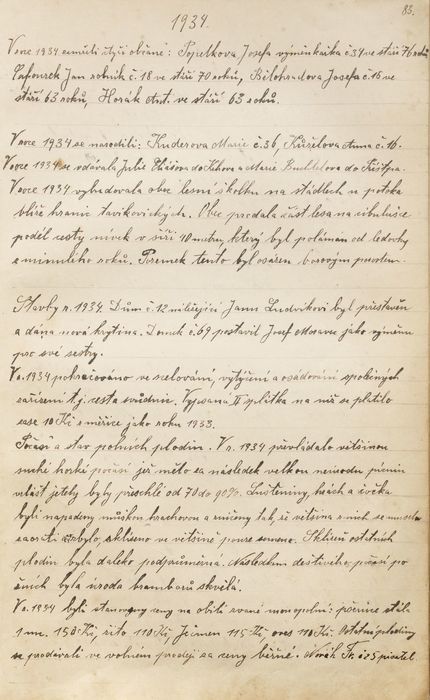 83.
1934.
V roce 1934 zemřeli čtyři občané: Popelkova Josefa výměnkářka č 34 ve stáří 76 roků,
Jan rolník č. 18 ve stáří 70 roků, Bělohradova Josefa č 15 ve
stáří 63 roků, Horák Ant. ve stáří 63 roků.
V roce 1934 se narodili: Kuderova Marie č. 36, Kuželova Anna č. 16.
V roce 1934 se vdávala Julie do a Marie do
V roce 1934 vybudovala obec lesní školku na u potoka
blíže hranic tavikovických. Obec prodala část lesa na cibulisce
podél cesty nivek v šíři 40 metru, který byl polámán od ledovky
z minulého roku. Pozemek tento byl osázen borovým porostem.
Stavby r. 1934. Dům č. 12 náležející Janu Ludvikovi byl přestavěn
a dána nová krytina. Domek č. 69 postavil Josef Moravec jako výměnu
pro své sestry.
V r. 1934 pokračováno ve scelování, vytýčení a osádování společných
zařízení t.j. cesta Vypsána II splátka na niž se platilo
zase 10 Kč z měřice jako roku 1933.
Počasí a stav polních plodin. V r. 1934 převládalo většinou
suché horké počasí jež mělo za následek velkou neúrodu pícnin
zvlášť jetely byly přischlé od 70 do 90%. Luštěniny, hrách a čočka
byli napadeny muškou hrachovou a zničeny tak, že většina z nich se musela
zaorati a bylo sklizeno ve většině pouze semeno. Sklizeň ostatních
plodin byla daleko podprůměrná. Následkem deštivého počasí po
žních byla úroda bramborů skvělá.
V r. 1934 byli stanoveny ceny na obilí zvané monopolní: pšenice stála
1 mc. 150 Kč, žito 110 Kč, Ječmen 115 Kč, oves 110 Kč. Ostatní plodiny
se prodávali ve volném prodeji za ceny běžné. Novák Fr. č 25 pisatel.